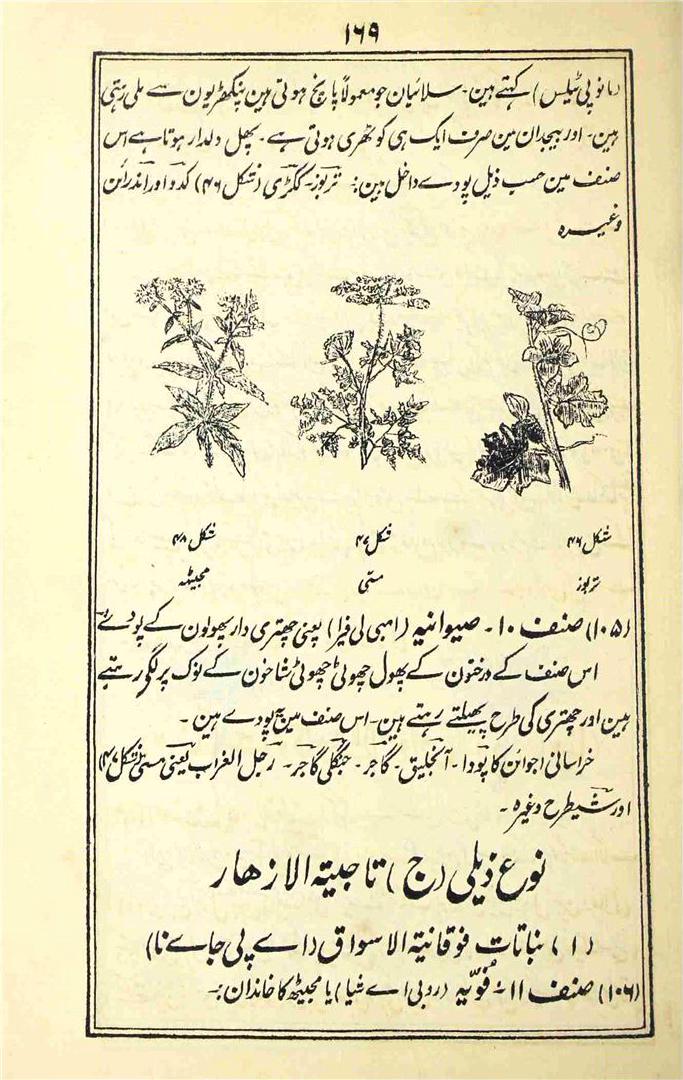 ۱۶۹
(مانوپی ٹیلس) کہتے ہین۔ سلائیان جو معمولاً پانچ ہوتی ہین پنکھڑیون سے ملی رہتی
ہین۔ اور بیجدان مین صرف ایک ہی کوٹھری ہوتی ہے۔ پھل دلدار ہوتا ہے اس
صنف مین حسب ذیل پودے داخل ہین:۔ تربوز۔ ککڑی (شکل ۴۶) کدو اور اندرائن
وغیرہ
شکل ۴۶ شکل ۴۷ شکل ۴۸
تربوز مسّی مجیٹھ
(۱۰۵) صنف ۱۰۔ صیوانیہ (امبی لی فیرا) یعنی چھتری دار پھولون کے پودے:۔
اس صنف کے درختون کے پھول چھوٹی چھوٹی شاخون کے نوک پر لگے رہتے
ہین اور چھتری کی طرح پھیلتے رہتے ہین۔ اس صنف مین یہ پودے ہین۔
خراسانی اجوائن کا پودا۔ انجلیق۔ گاجر۔ جنگلی گاجر۔ رجل الغراب یعنی مسّی (شکل ۴۷)
اور شیطرح وغیرہ۔
نوع ذیلی (ج) تاجیتہ الازھار
(۱) نباتات فوقانیتہ الاسواق (اے پی جاے نا)
(۱۰۶) صنف ۱۱۔ فُوّیّہ (روبی اے شیا) یا مجیٹھ کا خاندان:۔